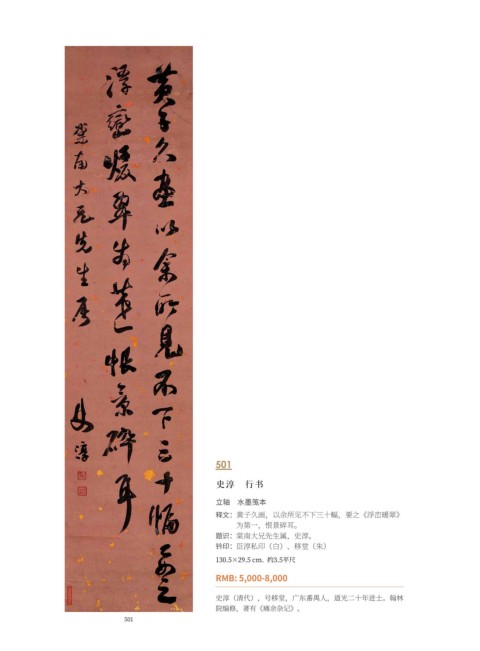 黃子久畫以余所見不下三十幅要之
浮巒暖翠為第一恨景碎耳
棠南大兄先生属
史淳
501
501
史淳 行书
立轴 水墨笺本
释文：黄子久画，以余所见不下三十幅，要之《浮峦暖翠》
为第一，恨景碎耳。
题识：棠南大兄先生属，史淳。
钤印：臣淳私印（白）、移堂（朱）
130.5×29.5 cm. 约3.5平尺
RMB: 5,000-8,000
史淳（清代），号移堂，广东番禺人，道光二十年进士。翰林
院编修，著有《痛余杂记》。